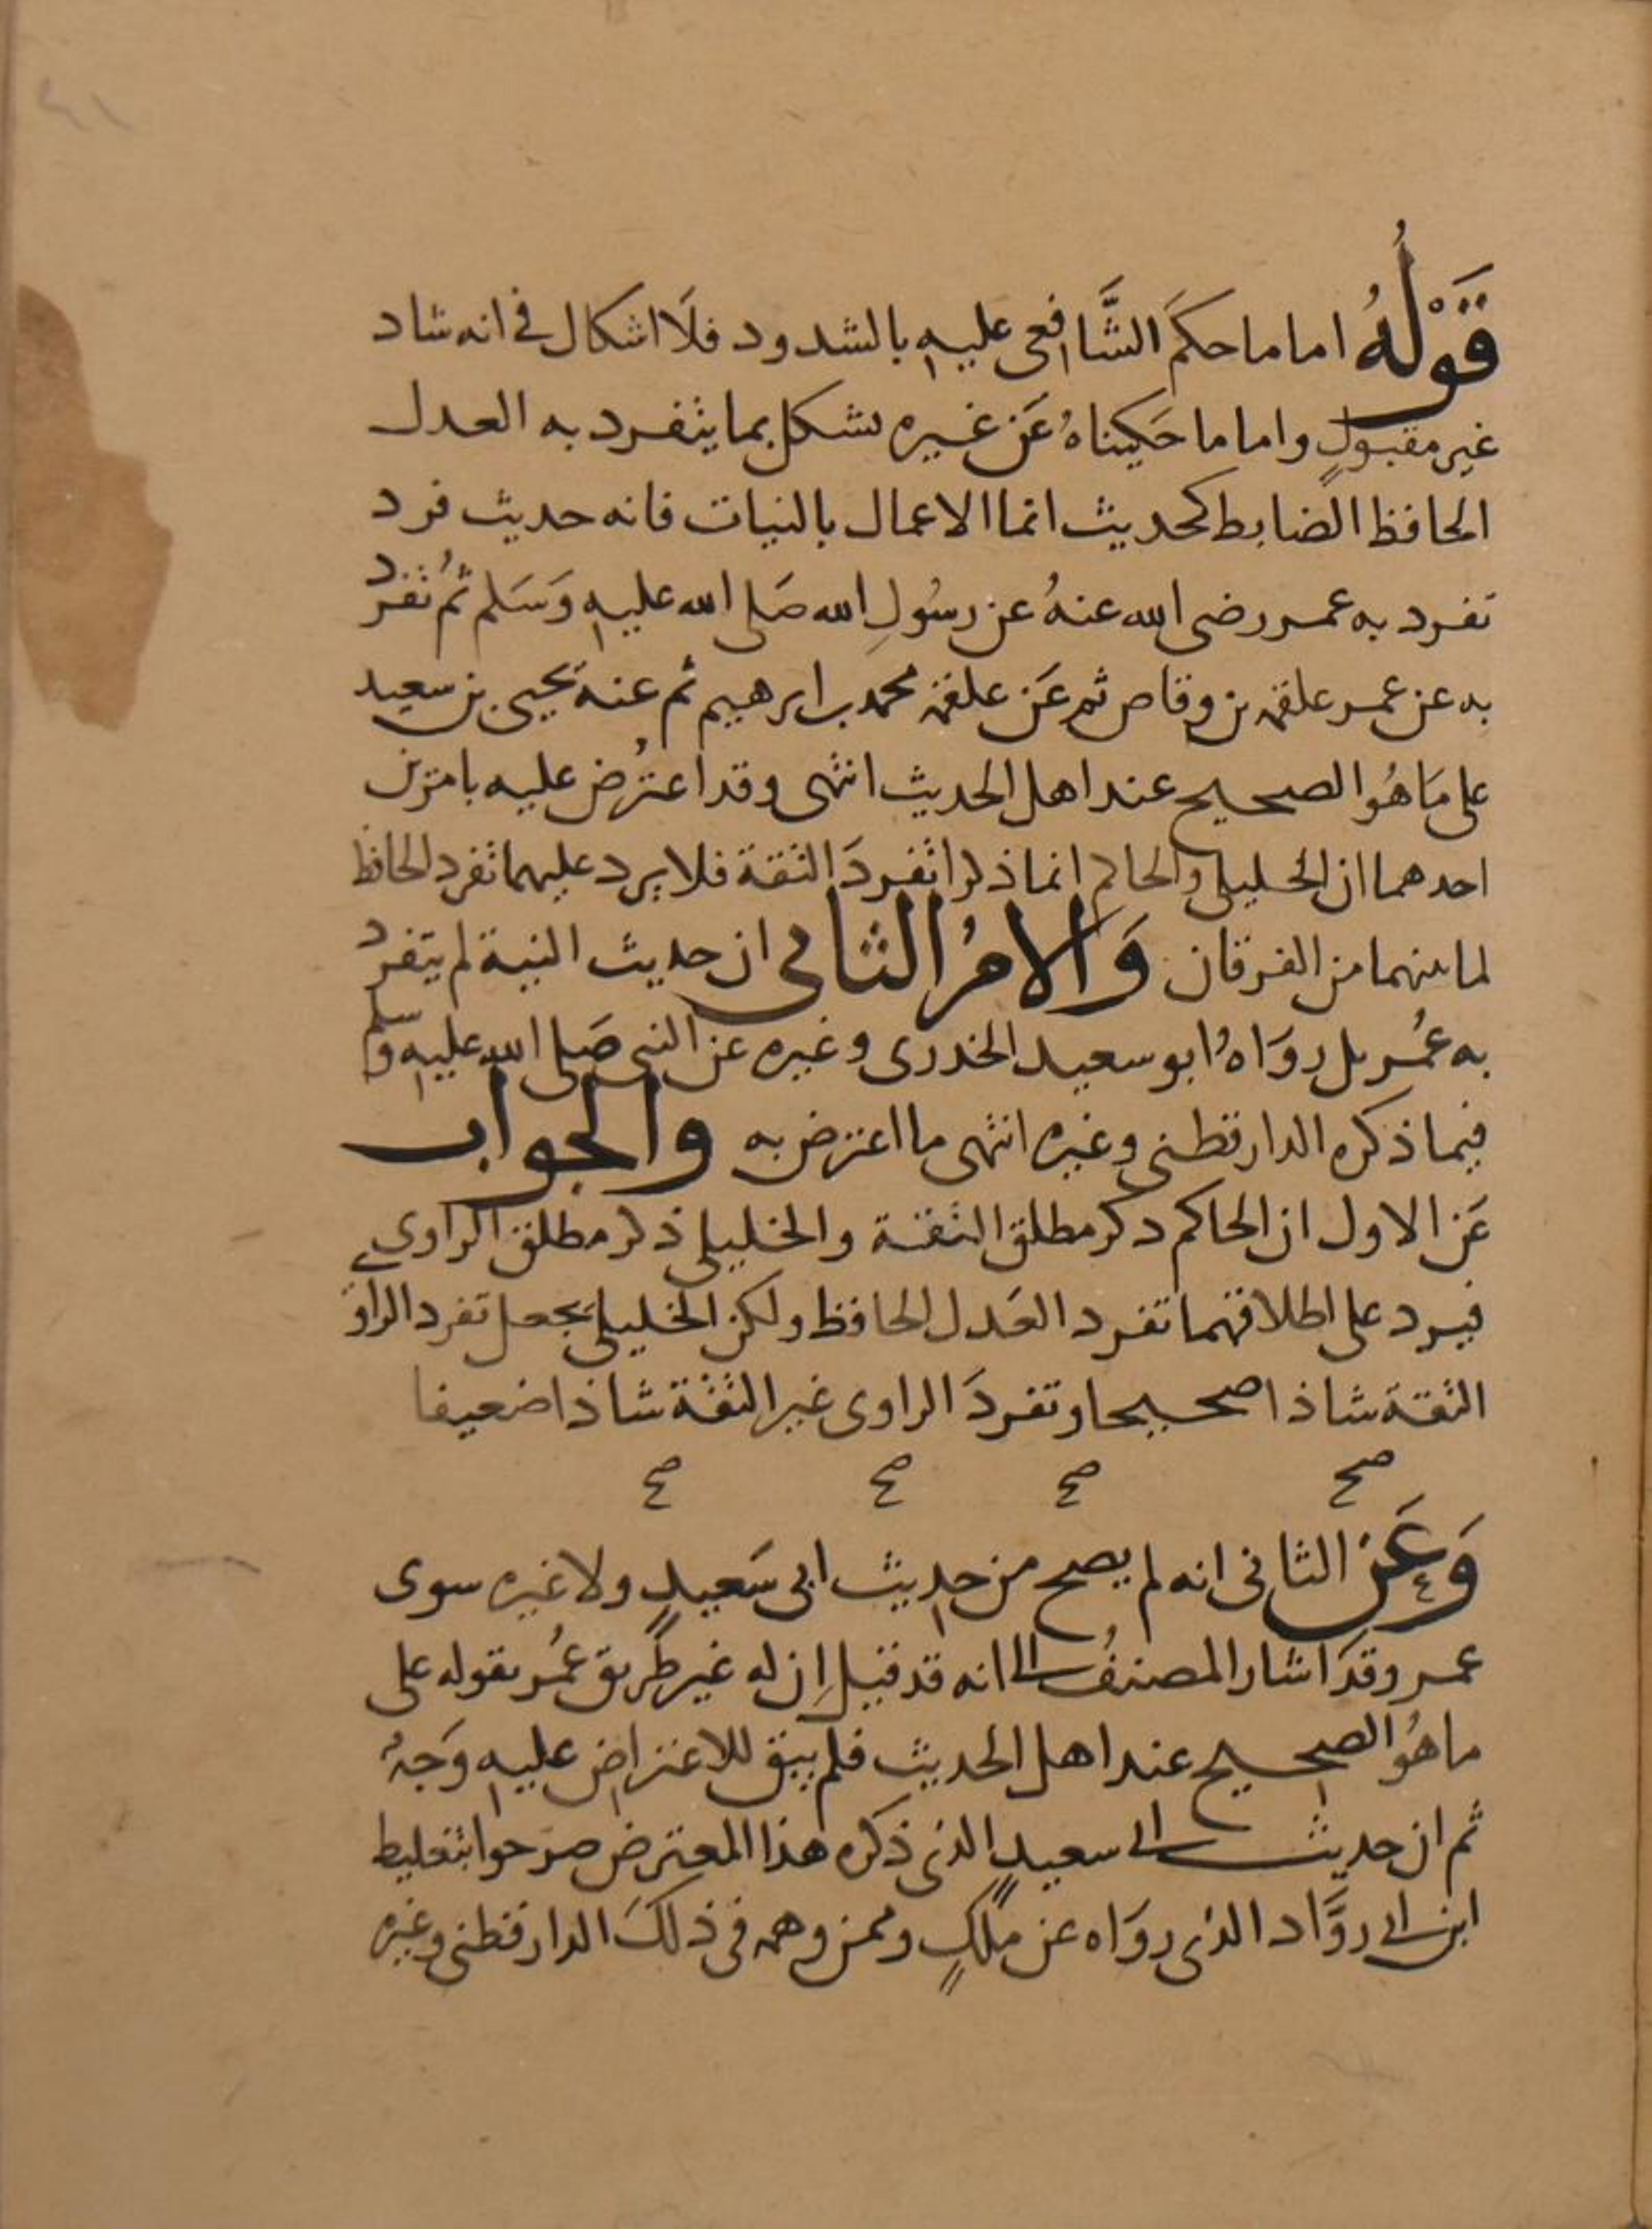 قَوْلُهُ اما ما حكمَ الشَّافعى عليه بالشدود فلَا اشكال فى انه شاد
غير مقبولٍ واما ما حَكيناهُ عَن غيره يشكل بما يتفرد به العدل
الحافظ الضابط كحديث انما الاعمال بالنيات فانه حديث فرد
تفرد به عمر رضى الله عنهُ عن رسُولِ الله صَلى الله عليه وَسَلم ثُم تفرد
به عن عمر علقمة بن وقاص ثم عَن علقمة محمد بن ابرهيم ثم عنه يحيى بن سعيد
على مَا هُو الصحيح عند اهل الحديث انتهى وقد اعتُرض عليه بامرين
احدهما ان الخليلى والحاكم انما ذكرا تفردَ الثقة فلا يرد عليهما تفرد الحافظ
لما بينهما من الفرقان وَالامرُ الثانى ان حديث النية لم يتفرد
به عُمر بل روَاهُ ابو سعيد الخدرى وغيره عن النبى صَلى الله عليه وسلم
فيما ذكره الدارقطنى وغيره انتهى ما اعترض به والجواب
عَن الاول ان الحاكم دكر مطلق الثقة والخليلى ذكر مطلق الراوى
فيرد على اطلاقهما تفرد العَدل الحافظ ولكن الخليلى يجعل تفرد الراو
الثقة شاذا صحيحا وتفردَ الراوى غير الثقة شاذا ضعيفا
صح صح صح صح
وَعَن الثانى انه لم يصح من حديث ابى سَعيدٍ ولا غيره سوى
عمر وقدَ اشار المصنفُ الى انه قد قيل اِن له غير طَريق عُمر بقوله على
ما هُو الصحيح عند اهل الحديث فلم يبق للاعتراض عليه وَجهُ
ثم ان حديث ابى سعيدٍ الذى ذكره هذا المعترض صرحوا بتغليط
ابن ابى روَّاد الذى روَاه عن ملكٍ وممن وهمه فى ذلكَ الدارقطنى وغيره